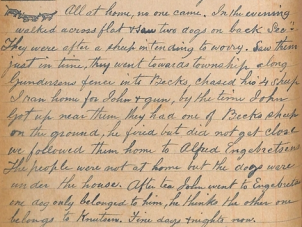 All at home, no one came. In the evening
walked across flat & saw two dogs on back Sec.
They were after a sheep intending to worry. Saw them
just in time, they went towards township along
Gundersens fence into Becks, chased his 4 sheep
I ran home for John & gun, by the time John
got up near them they had one of Becks sheep
on the ground, he fired but did not get close
we followed them home to Alfred Engebretsen
The people were not at home but the dogs were
under the house. After tea John went to Engebretsen
one dog only belonged to him, he thinks the other one
belongs to Knutsen. Fine days & nights now.